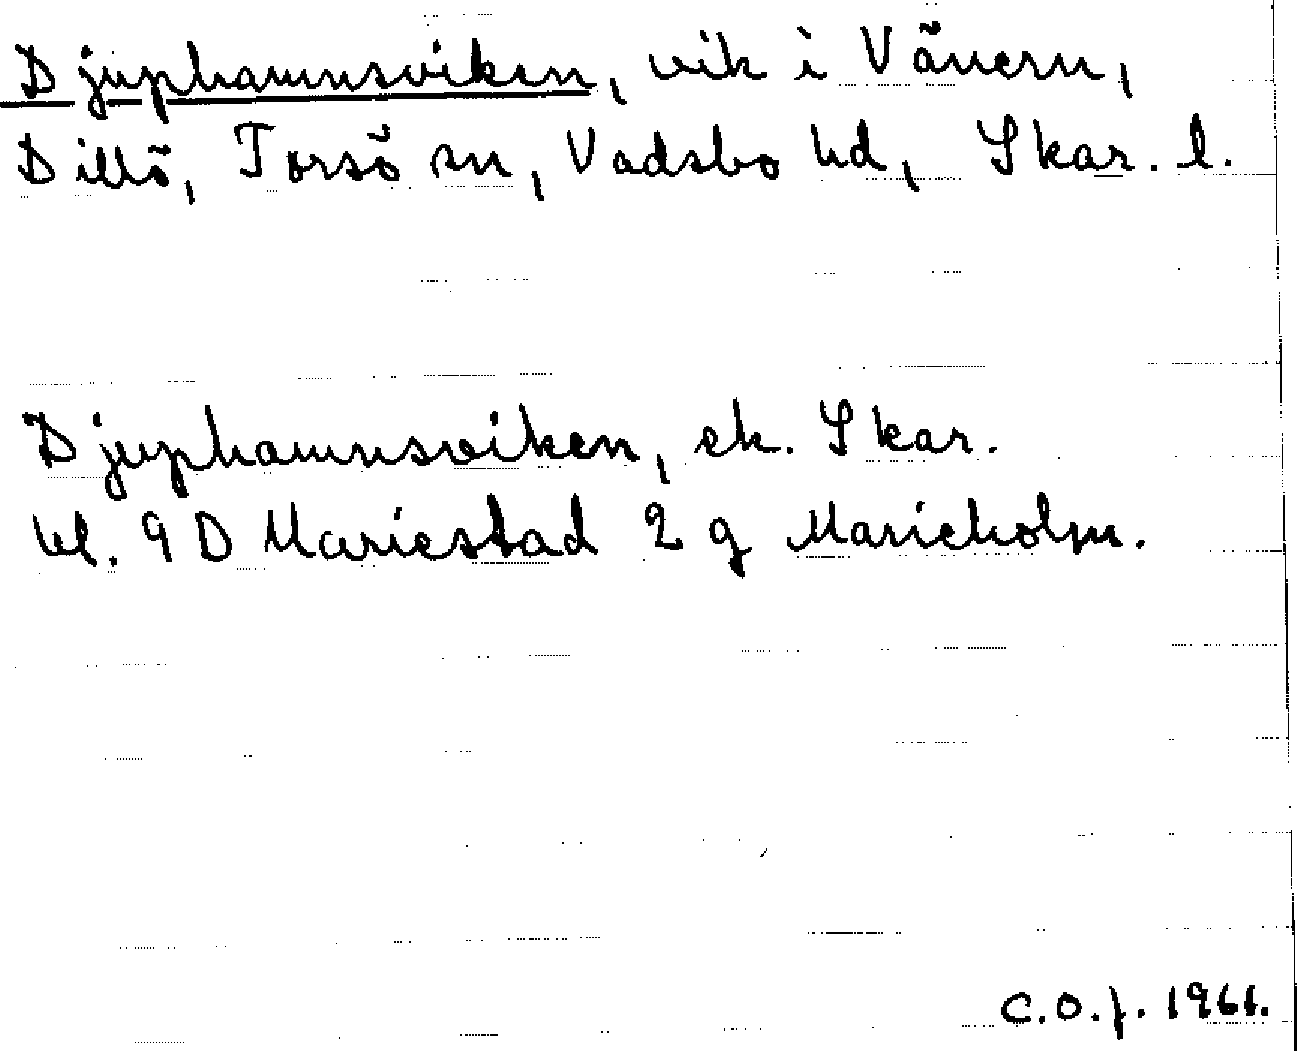 Djuphamnsviken, vik i Vänern,
Dillö, Torsö sn, Vadsbo hd, Skar. l.
Djuphamnsviken, ek. Skar.
bl. 9 D Mariestad 2 g Marieholm.
C.O.f. 1961.